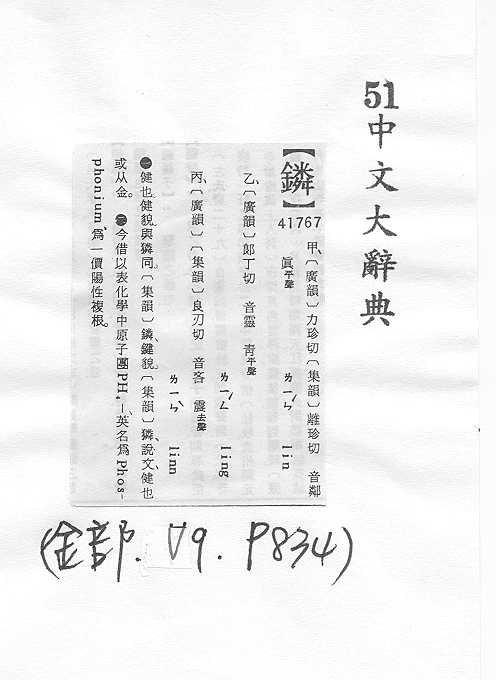 51中文大辭典
【鏻】
41767
甲、〔廣韻〕力珍切〔集韻〕離珍切 音鄰
眞平聲 ㄌㄧㄣˊ lin
乙、〔廣韻〕郎丁切 音靈 靑平聲
ㄌㄧㄥˊ ling
丙、〔廣韻〕〔集韻〕良刃切 音吝 震去聲
ㄌㄧㄣˋ linn
㊀健也、健貌、與獜同。〔集韻〕鏻、鍵貌。〔集韻〕獜、說文、健也、
或从金。㊁今借以表化學中原子團PH₄—、英名爲Phos-
phonium、爲一價陽性複根。
(金部. V9. P834)